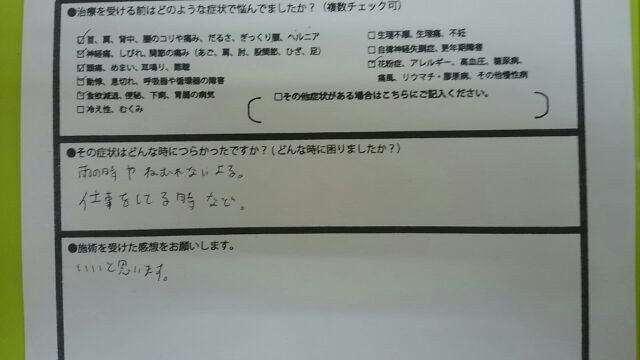 ●治療を受ける前はどのような症状で悩んでましたか？（複数チェック可）
☑首、肩、背中、腰のコリや痛み、だるさ、ぎっくり腰、ヘルニア
☑神経痛、しびれ、関節の痛み（あご、肩、肘、股関節、ひざ、足）
☑頭痛、めまい、耳鳴り、難聴
☑動悸、息切れ、呼吸器や循環器の障害
☑食欲減退、便秘、下痢、胃腸の病気
□冷え性、むくみ
□生理不順、生理痛、不妊
□自律神経失調症、更年期障害
☑花粉症、アレルギー、高血圧、糖尿病、
痛風、リウマチ・膠原病、その他慢性病
□その他症状がある場合はこちらにご記入ください。
●その症状はどんな時につらかったですか？(どんな時に困りましたか？)
雨の時や ねむれないよる。
仕事をしてる時 など。
●施術を受けた感想をお願いします。
いいと思います。